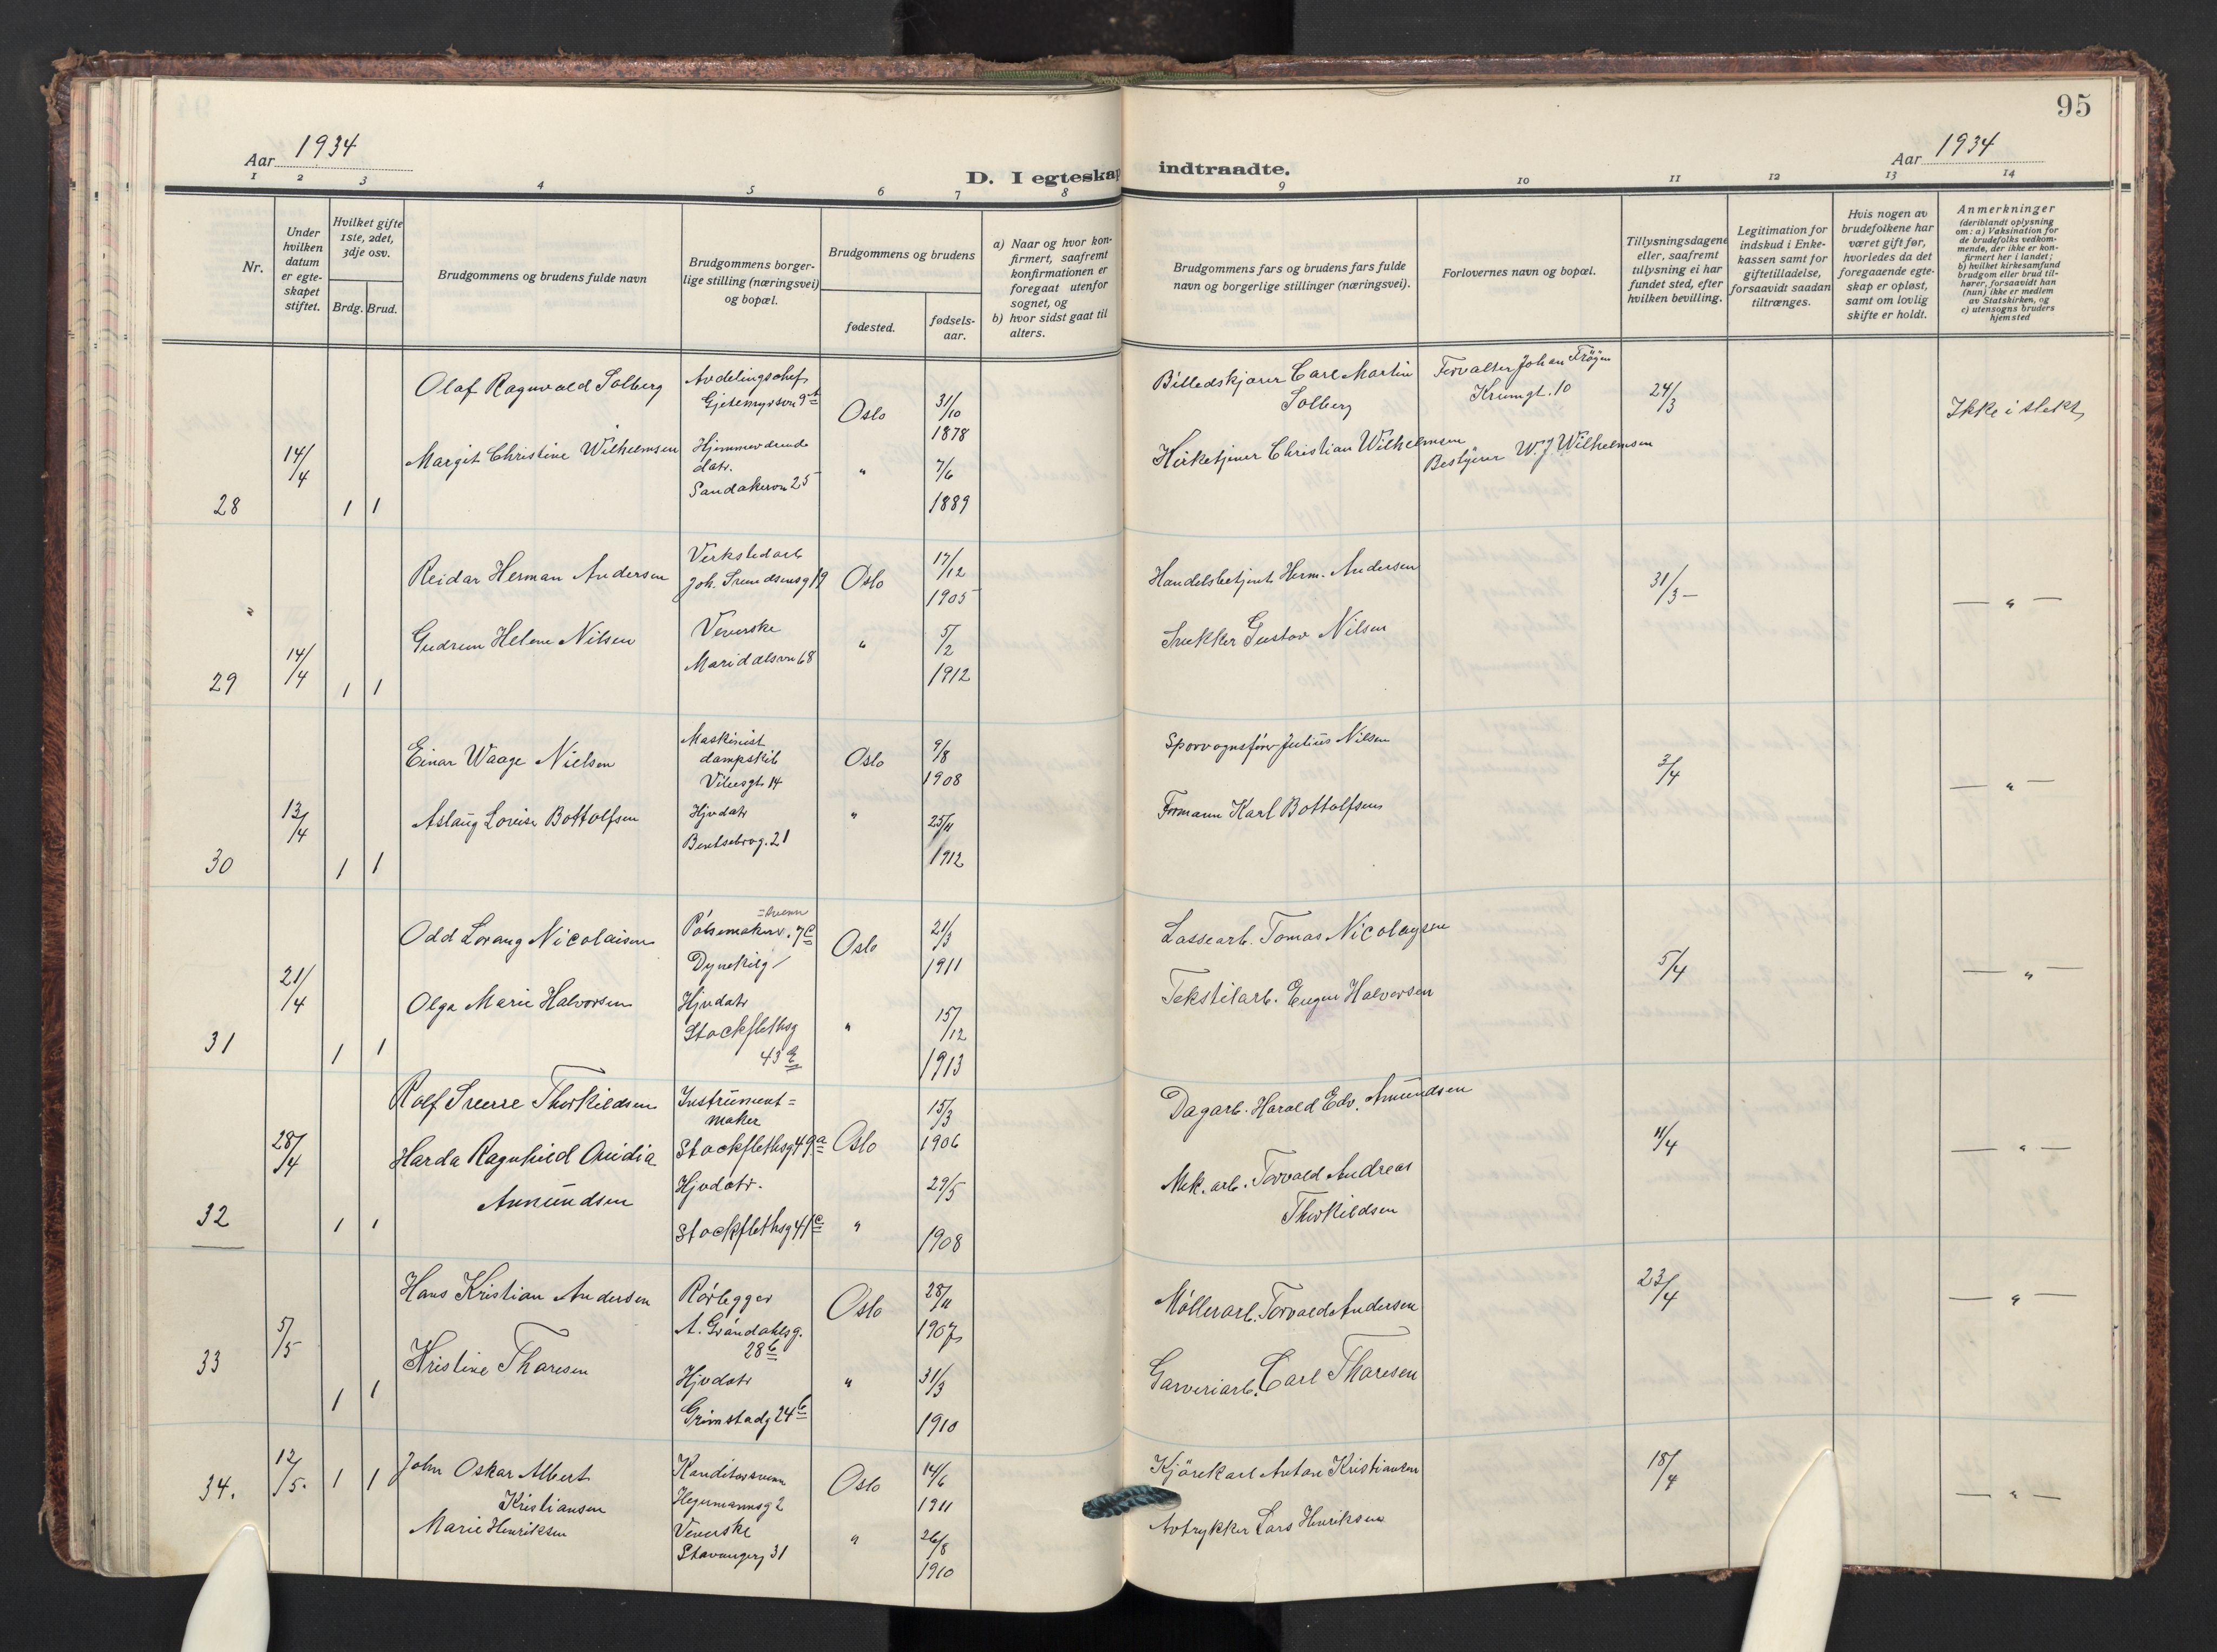 95
Aar 1934
Aar 1934
D. I egteskap indtraadte.
1 2 3 4 5 6 7 8 9 10 11 12 13 14
Nr.
Under hvilken datum er egteskapet stiftet.
Hvilket gifte 1ste, 2det, 3dje osv.
Brdg. Brud.
Brudgommens og brudens fulde navn
Brudgommens borgerlige stilling (næringsvei) og bopæl.
Brudgommens og brudens
fødested.
fødselsaar.
a) Naar og hvor konfirmert, saafremt konfirmationen er foregaat utenfor sognet, og
b) hvor sidst gaat til alters.
Brudgommens fars og brudens fars fulde navn og borgerlige stillinger (næringsvei).
Forlovernes navn og bopæl.
Tillysningsdagene eller, saafremt tillysning ei har fundet sted, efter hvilken bevilling.
Legitimation for indskud i Enkekassen samt for giftetilladelse, forsaavidt saadan tiltrænges.
Hvis nogen av brudefolkene har været gift før, hvorledes da det foregaaende egteskap er opløst, samt om lovlig skifte er holdt.
Anmerkninger
(deriblandt oplysning om: a) Vaksination for de brudefolks vedkommende, der ikke er konfirmert her i landet; b) hvilket kirkesamfund brudgom eller brud tilhører, forsaavidt han (hun) ikke er medlem av Statskirken, og c) utensogns bruders hjemsted
28
14/4
1 1
Olaf Ragnvald Solberg
Avdelingschef
Gjetemyrsvn 9
Oslo
31/10
1878
Billedskjærer Carl Martin
Solberg
Forvalter Johan Frøyen
Krumgt. 10
24/3
Ikke i slekt
Margit Christine Wilhelmsen
Hjemmeværende
datr.
Sandakervn 25
"
7/6
1889
Kirketjener Christian Wilhelmsen
Bestyrer W. J. Wilhelmsen
29
14/4
1 1
Reidar Herman Andersen
Verkstedarb
Joh. Svendsensg 19
Oslo
17/12
1905
Handelsbetjent Herm. Andersen
31/3 –
— " —
Gudrun Helene Nilsen
Veverske
Maridalsvn 68
"
5/2
1912
Snekker Gustav Nilsen
30
13/4
1 1
Einar Waage Nielsen
Maskinist
dampskib
Vibesgt. 14
Oslo
9/8
1908
Sporvognsfører Julius Nilsen
3/4
— " —
Aslaug Lovise Bottolfsen
Hjvdatr
Bentsebrog. 21
"
25/11
1912
Formann Karl Bottolfsen
31
21/4
1 1
Odd Lorang Nicolaisen
Pølsemaker=svenn
Dynekilg 7c
Oslo
21/3
1911
Lossearb. Tomas Nicolaysen
5/4
— " —
Olga Marie Halvorsen
Hjvdatr
Stockflethsg
43
"
15/12
1913
Tekstilarb. Eugen Halvorsen
32
28/4
1 1
Rolf Sverre Thorkildsen
Instrument=
maker
Stockflethsg 49a
Oslo
15/3
1906
Dagarb. Harald Edv. Amundsen
11/4
— " —
Harda Ragnhild Ovidia
Amundsen
Hjvdatr.
Stockflethsg 41c
"
29/5
1908
Mek. arb. Torvald Andreas
Thorkildsen
33
5/5
1 1
Hans Kristian Andersen
Rørlegger
A. Grøndahlsg.
28b
Oslo
28/11
1907
Møllerarb. Torvald Andersen
23/4
— " —
Kristine Thoresen
Hjvdatr
Grimstadg 24b
"
31/3
1910
Garveriarb. Carl Thoresen
34.
12/5.
1 1
John Oskar Albert
Kristiansen
Konditorsvenn
Hegermannsg 2
Oslo
14/6
1911
Kjørekarl Anton Kristiansen
18/4
— " —
Marie Henriksen
Veverske
Stavangerg 31
"
26/8
1910
Avtrykker Lars Henriksen